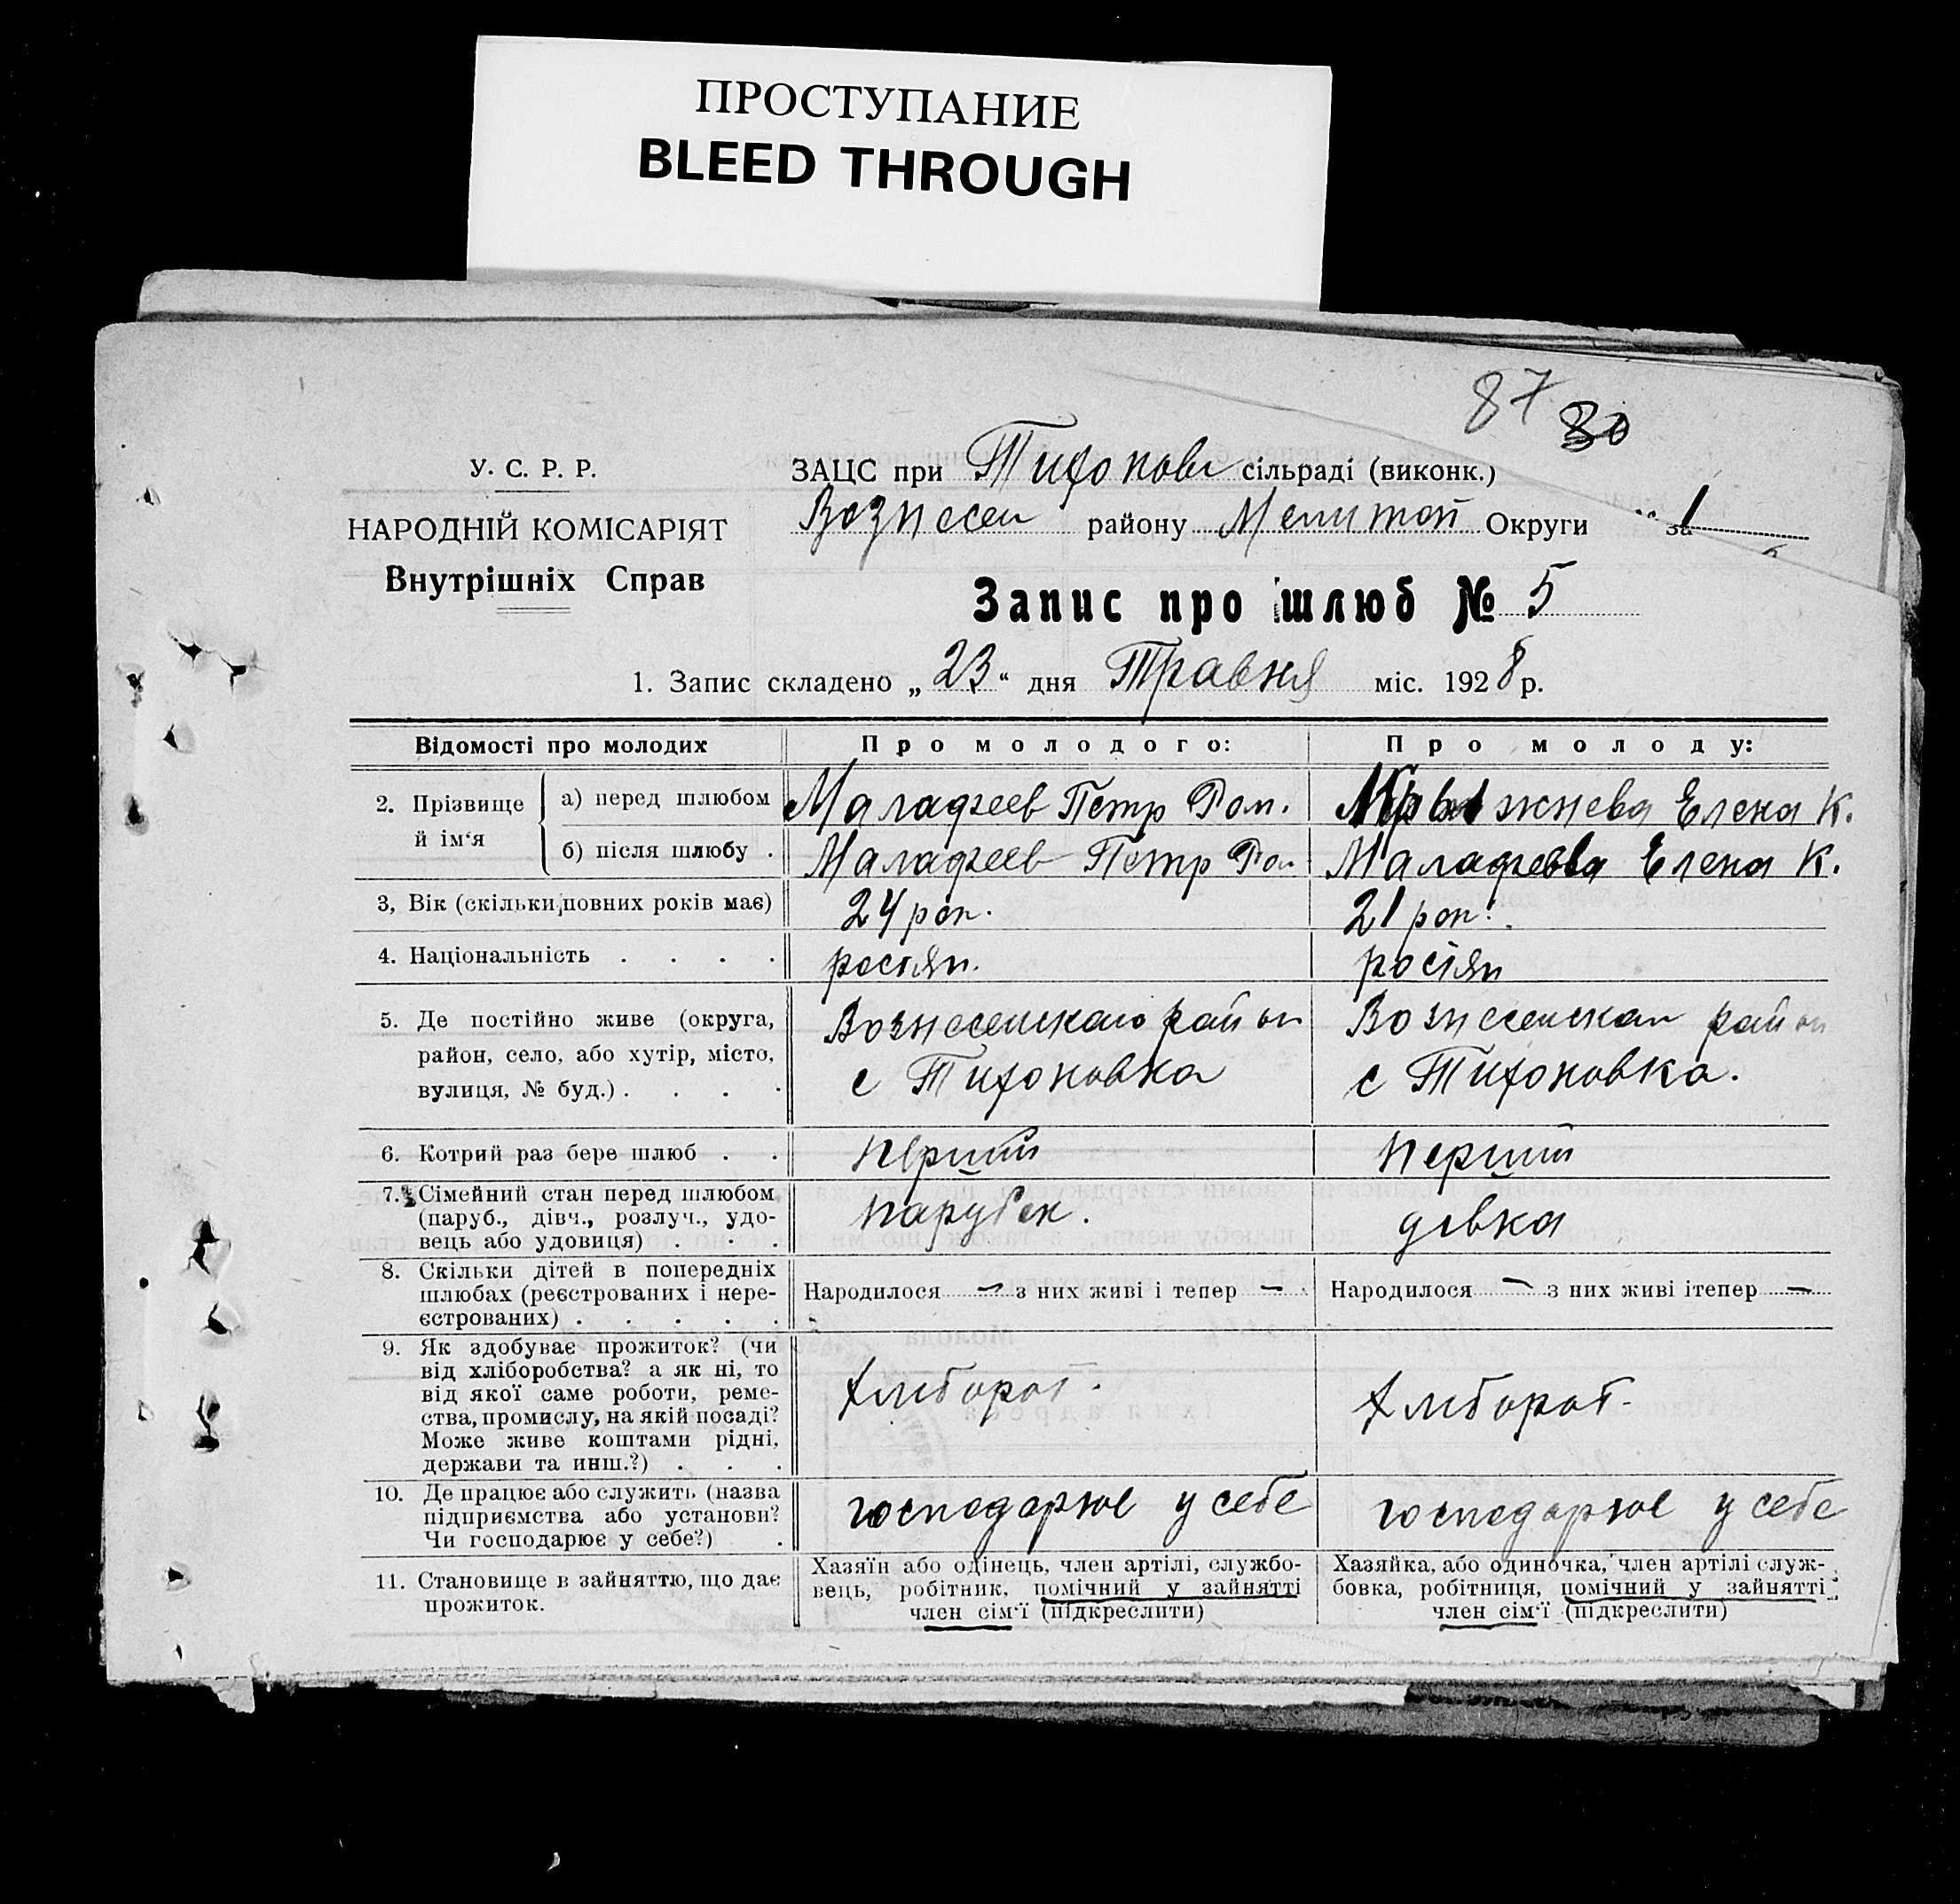 ПРОСТУПАНИЕ
BLEED THROUGH
87 80
У. С. Р. Р.
НАРОДНІЙ КОМІСАРІЯТ
Внутрішніх Справ
ЗАЦС при Тихонові сільраді (виконк.)
Вознесен району Мелитоп Округи за 1
Запис про шлюб № 5
1. Запис складено „23“ дня Травня міс. 1928 р.
Відомості про молодих
Про молодого:
Про молоду:
2. Прізвище й ім‘я
а) перед шлюбом
Маладжеев Петр Ром.
Елена К.
б) після шлюбу .
Маладжеев Петр Ром
Маладжеева Елена К.
3, Вік (скільки повних років має)
24 рок.
21 рок.
4. Національність . . . .
росіян.
росіян
5. Де постійно живе (округа,
район, село, або хутір, місто,
вулиця, № буд.) . . . .
Вознесенскаго район
с Тихоновка
Вознесенскаг район
с Тихоновка.
6. Котрий раз бере шлюб . .
перший
перший
7. Сімейний стан перед шлюбом
(паруб., дівч., розлуч., удо-
вець або удовиця) . . .
парубок.
дівка
8. Скільки дітей в попередніх
шлюбах (реєстрованих і нере-
єстрованих) . . . . .
Народилося — з них живі і тепер —
Народилося — з них живі ітепер —
9. Як здобуває прожиток? (чи
від хліборобства? а як ні, то
від якої саме роботи, реме-
ства, промислу, на якій посаді?
Може живе коштами рідні,
держави та инш.?) . . .
Хлібороб.
Хлібороб.
10. Де працює або служить (назва
підприємства або установи?
Чи господарює у себе?) .
господарює у себе
господарює у себе
11. Становище в зайняттю, що дає
прожиток.
Хазяїн або одінець, член артілі, службо-
вець, робітник, помічний у зайнятті
член сім‘ї (підкреслити)
Хазяйка, або одиночка, член артілі служ-
бовка, робітниця, помічний у зайнятті
член сім‘ї (підкреслити)